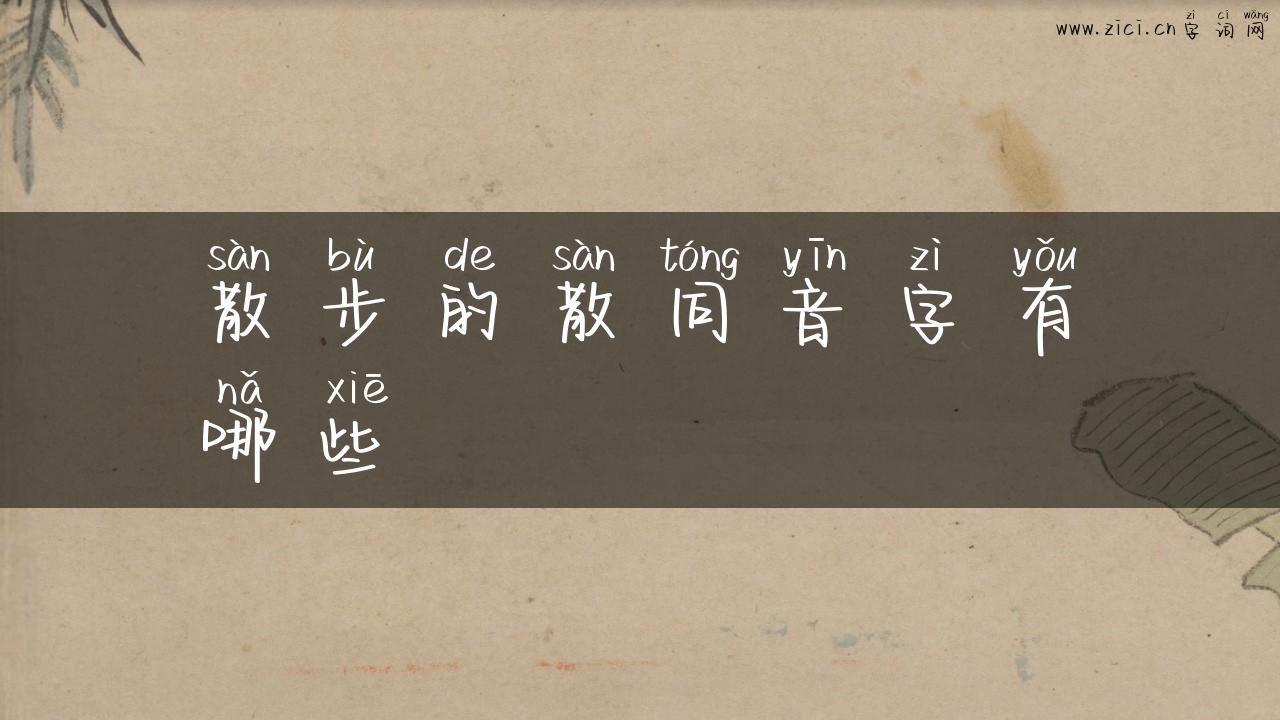 zì cí wǎng
www.zici.cn 字 词 网
sàn bù de sàn tóng yīn zì yǒu
散 步 的 散 同 音 字 有
nǎ xiē
哪 些